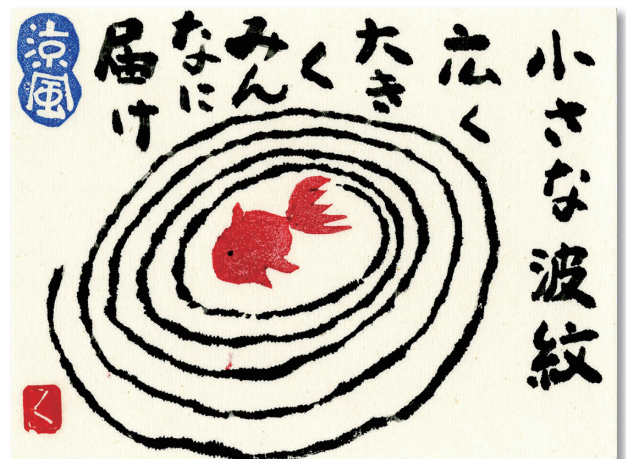 小さな波紋
広く
大き
く
みん
なに
届け
涼風
く